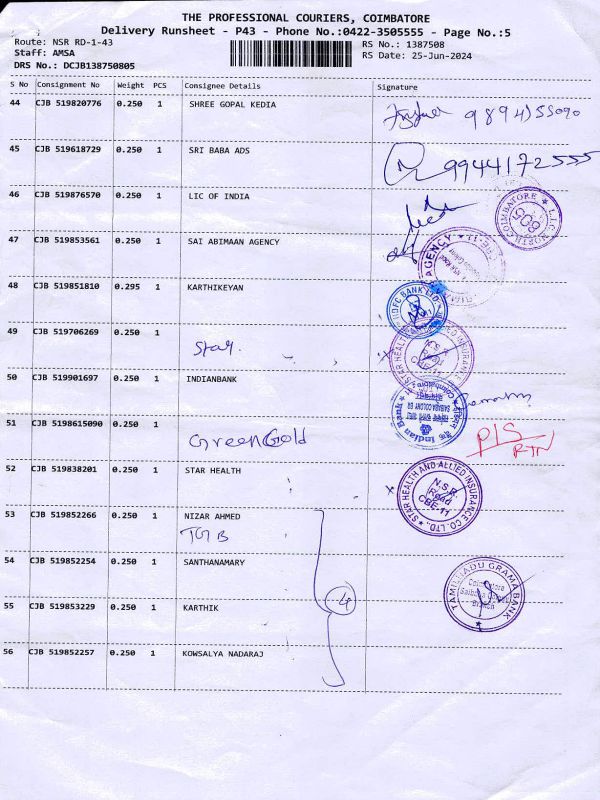 THE PROFESSIONAL COURIERS, COIMBATORE
Delivery Runsheet - P43 - Phone No.:0422-3505555 - Page No.:5
Route: NSR RD-1-43
RS No.: 1387508
Staff: AMSA
RS Date: 25-Jun-2024
DRS No.: DCJB138750805
S No Consignment No Weight PCS Consignee Details Signature
44 CJB 519820776 0.250 1 SHREE GOPAL KEDIA
45 CJB 519618729 0.250 1 SRI BABA ADS 9944172555
46 CJB 519876570 0.250 1 LIC OF INDIA
L.I.C. NORTH COIMBATORE
47 CJB 519853561 0.250 1 SAI ABIMAAN AGENCY
AGENCY
48 CJB 519851810 0.295 1 KARTHIKEYAN
HDFC BANK LTD
49 CJB 519706269 0.250 1
Star. STAR HEALTH INSURANCE
50 CJB 519901697 0.250 1 INDIANBANK
Indian Bank SAIBABA COLONY BR
51 CJB 5198615090 0.250 1
Green Gold P/S
RTN
52 CJB 519838201 0.250 1 STAR HEALTH
STAR HEALTH AND ALLIED INSURANCE CO. LTD.
N.S.R.
Road
CBE-11
53 CJB 519852266 0.250 1 NIZAR AHMED
TGB
54 CJB 519852254 0.250 1 SANTHANAMARY
TAMILNADU GRAMA BANK
Coimbatore
Saibaba Colony
Branch
55 CJB 519853229 0.250 1 KARTHIK
4
56 CJB 519852257 0.250 1 KOWSALYA NADARAJ